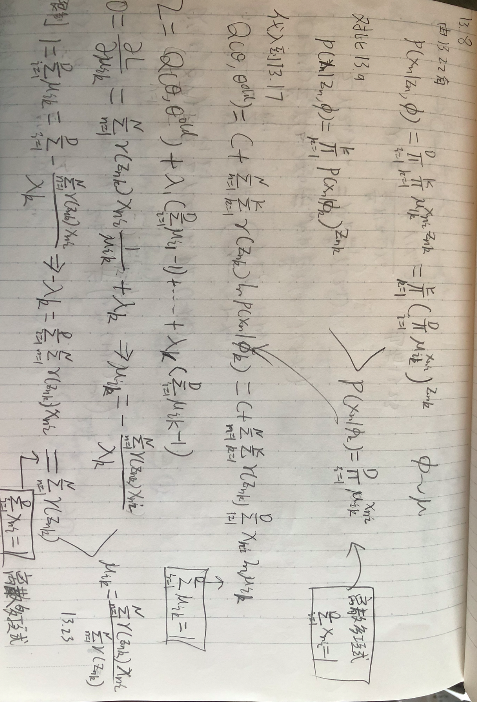 13.8
由13.22有
p(xₙ|zₙ,φ) = ∏_{i=1}^{D} ∏_{k=1}^{K} μ_{ik}^{xₙᵢzₙₖ} = ∏_{k=1}^{K} (∏_{i=1}^{D} μ_{ik}^{xₙᵢ})^{zₙₖ} φ~μ
对比13.9
p(xₙ|zₙ,φ) = ∏_{k=1}^{K} p(xₙ|φₖ)^{zₙₖ}
p(xₙ|φₖ) = ∏_{i=1}^{D} μ_{ik}^{xₙᵢ}
离散多项式
∑_{i=1}^{D} xₙᵢ = 1
代入到13.17
Q(θ,θ^{old}) = C + ∑_{n=1}^{N} ∑_{k=1}^{K} γ(zₙₖ) ln p(xₙ|φₖ) = C + ∑_{n=1}^{N} ∑_{k=1}^{K} γ(zₙₖ) ∑_{i=1}^{D} xₙᵢ ln μᵢₖ
∑_{i=1}^{D} μᵢₖ = 1
L = Q(θ,θ^{old}) + λ₁(∑_{i=1}^{D} μᵢ₁ - 1) + ··· + λ_K(∑_{i=1}^{D} μᵢK - 1)
0 = ∂L/∂μᵢₖ = ∑_{n=1}^{N} γ(zₙₖ) xₙᵢ 1/μᵢₖ + λₖ ⇒ μᵢₖ = - ∑_{n=1}^{N} γ(zₙₖ)xₙᵢ / λₖ
1 = ∑_{i=1}^{D} μᵢₖ = ∑_{i=1}^{D} - ∑_{n=1}^{N} γ(zₙₖ)xₙᵢ / λₖ ⇒ -λₖ = ∑_{i=1}^{D} ∑_{n=1}^{N} γ(zₙₖ)xₙᵢ = ∑_{n=1}^{N} γ(zₙₖ)
μᵢₖ = ∑_{n=1}^{N} γ(zₙₖ)xₙᵢ / ∑_{n=1}^{N} γ(zₙₖ)
13.23
∑_{i=1}^{D} xₙᵢ = 1
离散多项式